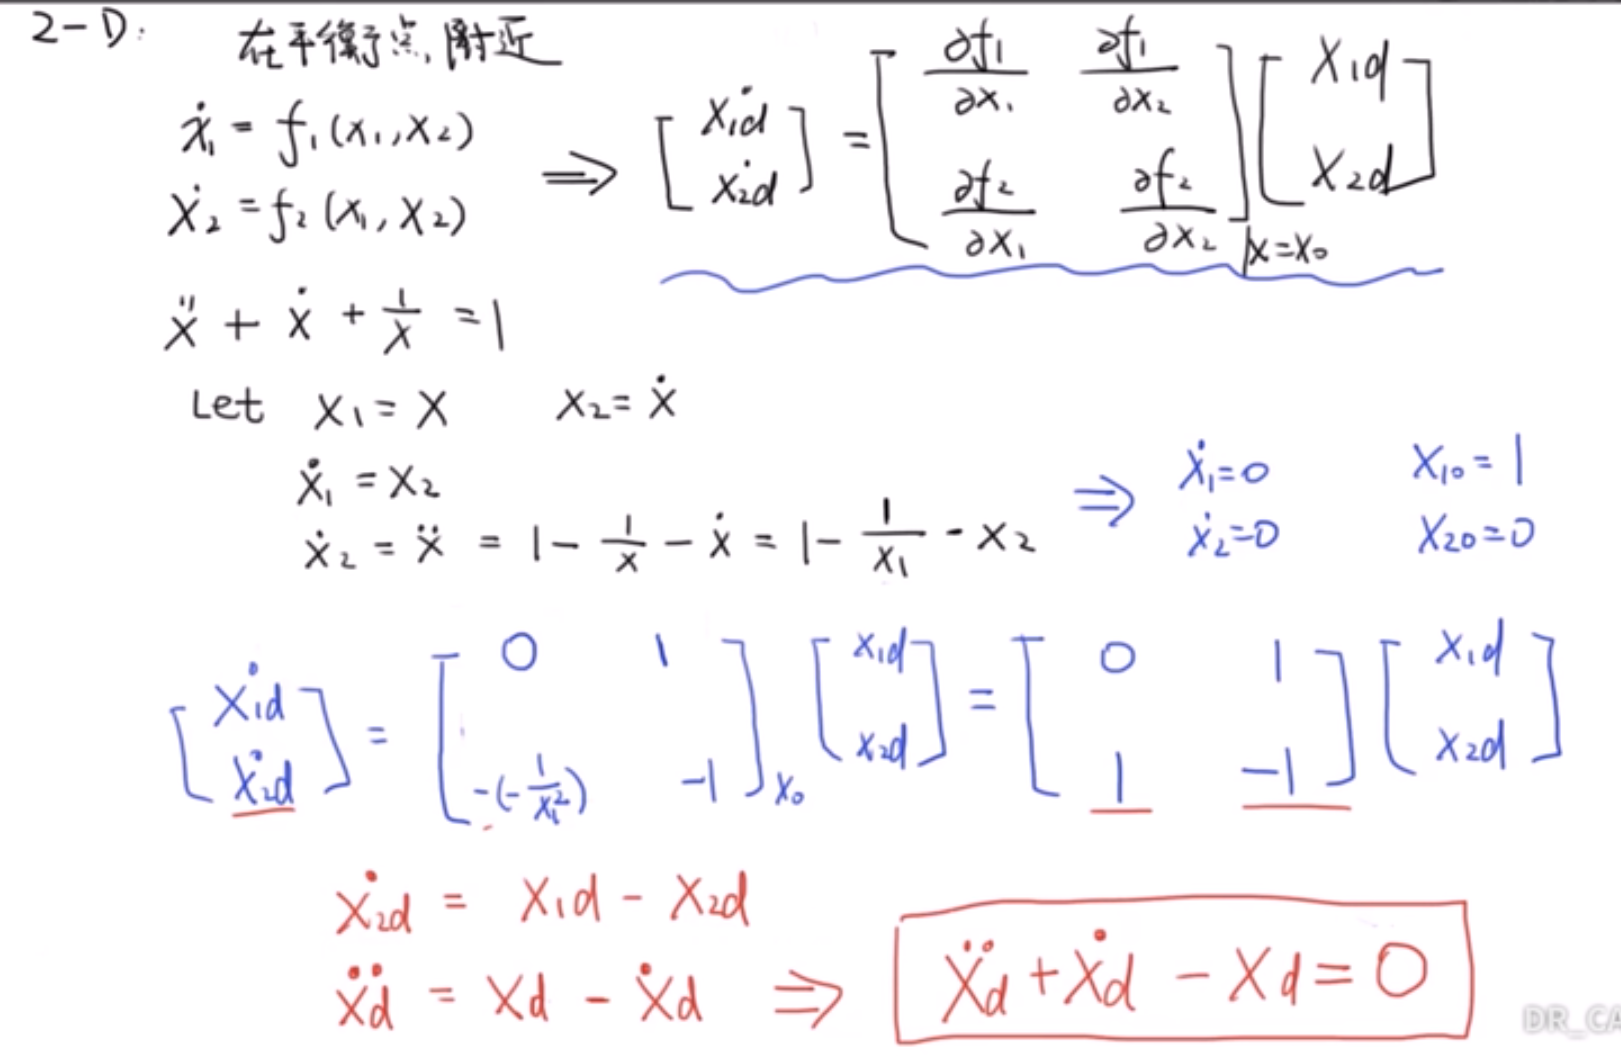 2-D: 在平衡点附近
ẋ₁ = f₁(x₁, x₂)
ẋ₂ = f₂(x₁, x₂)
⇒ [ẋ₁d; ẋ₂d] = [∂f₁/∂x₁ ∂f₁/∂x₂; ∂f₂/∂x₁ ∂f₂/∂x₂]|x=x₀ [x₁d; x₂d]
ẍ + ẋ + 1/x = 1
Let x₁ = x x₂ = ẋ
ẋ₁ = x₂
ẋ₂ = ẍ = 1 - 1/x - ẋ = 1 - 1/x₁ - x₂
⇒ ẋ₁=0 x₁₀=1
ẋ₂=0 x₂₀=0
[ẋ₁d; ẋ₂d] = [0 1; -(-1/x₁²) -1]x₀ [x₁d; x₂d] = [0 1; 1 -1] [x₁d; x₂d]
ẋ₂d = x₁d - x₂d
ẍd = xd - ẋd ⇒ ẍd + ẋd - xd = 0
DR_CA